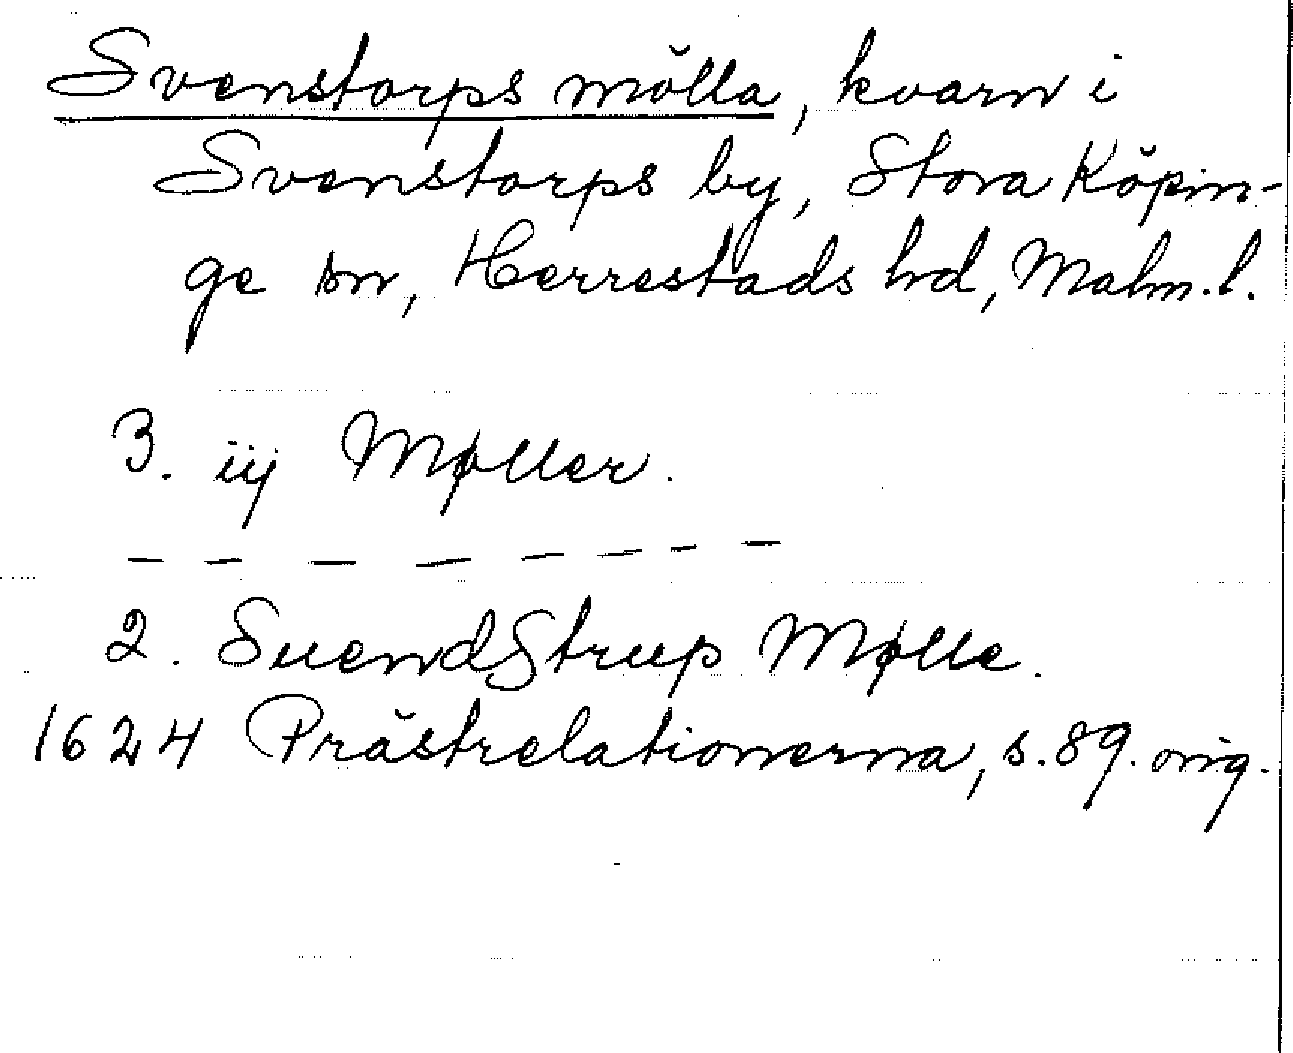 Svenstorps mölla, kvarn i
Svenstorps by, Stora Köpin-
ge sn, Herrestads hd, Malm. l.
3. iij Møller.
— — — — — — — —
2. Suendstrup Mølle.
1624 Prästrelationerna, s. 89. orig.